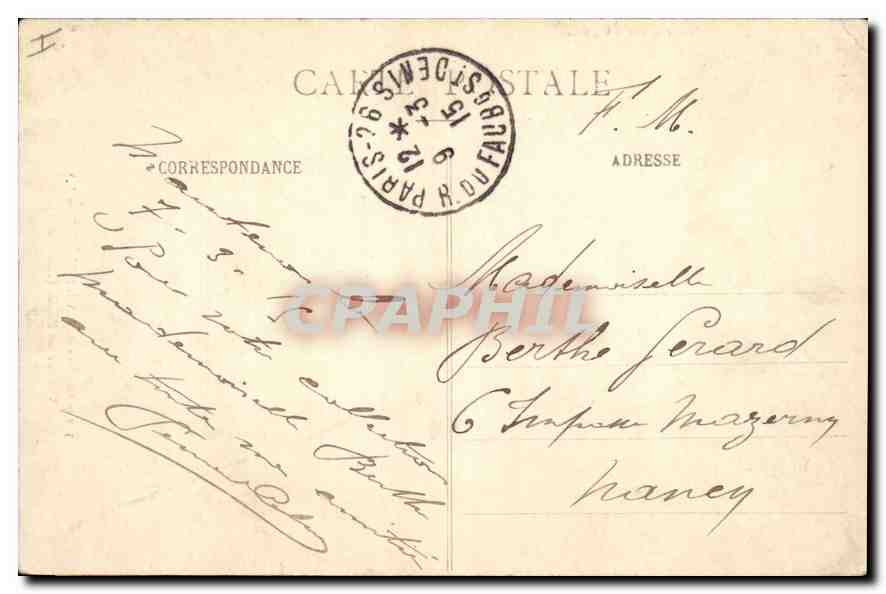 CARTE POSTALE
F. M.
CORRESPONDANCE
ADRESSE
PARIS-26 R. DU FAUBG ST DENIS
12 *
9 -3
15
7 - 3 - 15
Pour votre collection
Mademoiselle Berthe
avec toute mon amitié
Mademoiselle
Berthe Gerard
6 Impasse Mazerny
Nancy
CPAPHIL